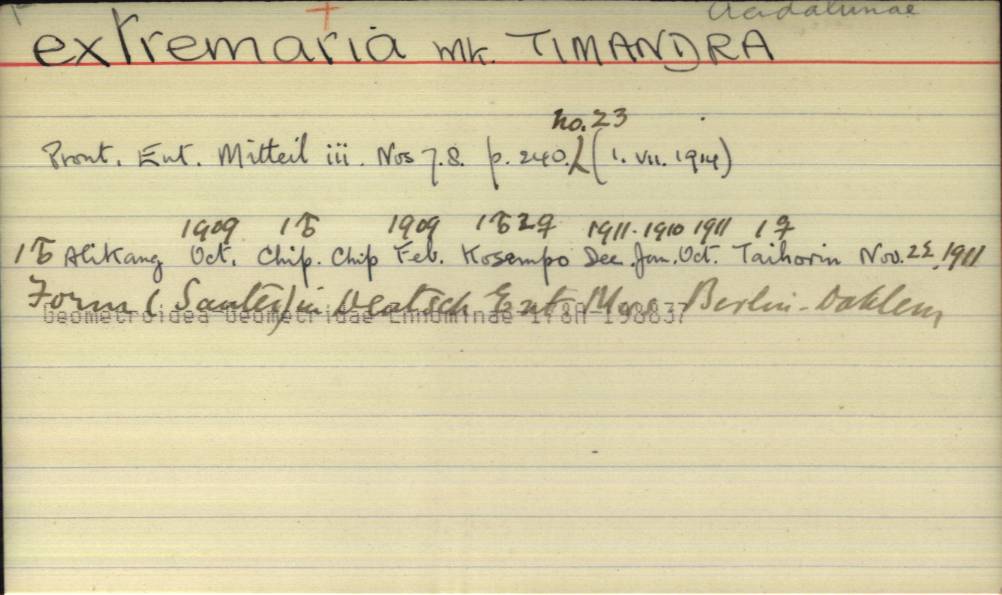 Acidaliinae
extremaria Wk. TIMANDRA
no. 23
Prout. Ent. Mitteil iii. Nos 7.8. p. 240. (1. VII. 1914)
1909 1♂ 1909 1♂2♀ 1911. 1910 1911 1♀
1♂ Alikang Oct. Chip. Chip Feb. Kosempo Dec. Jan. Oct. Taihorin Nov. 22. 1911
Form (Sauter) in Deutsch Ent Mus Berlin-Dahlem
Geometroidea Geometridae Ennominae 178A 198837